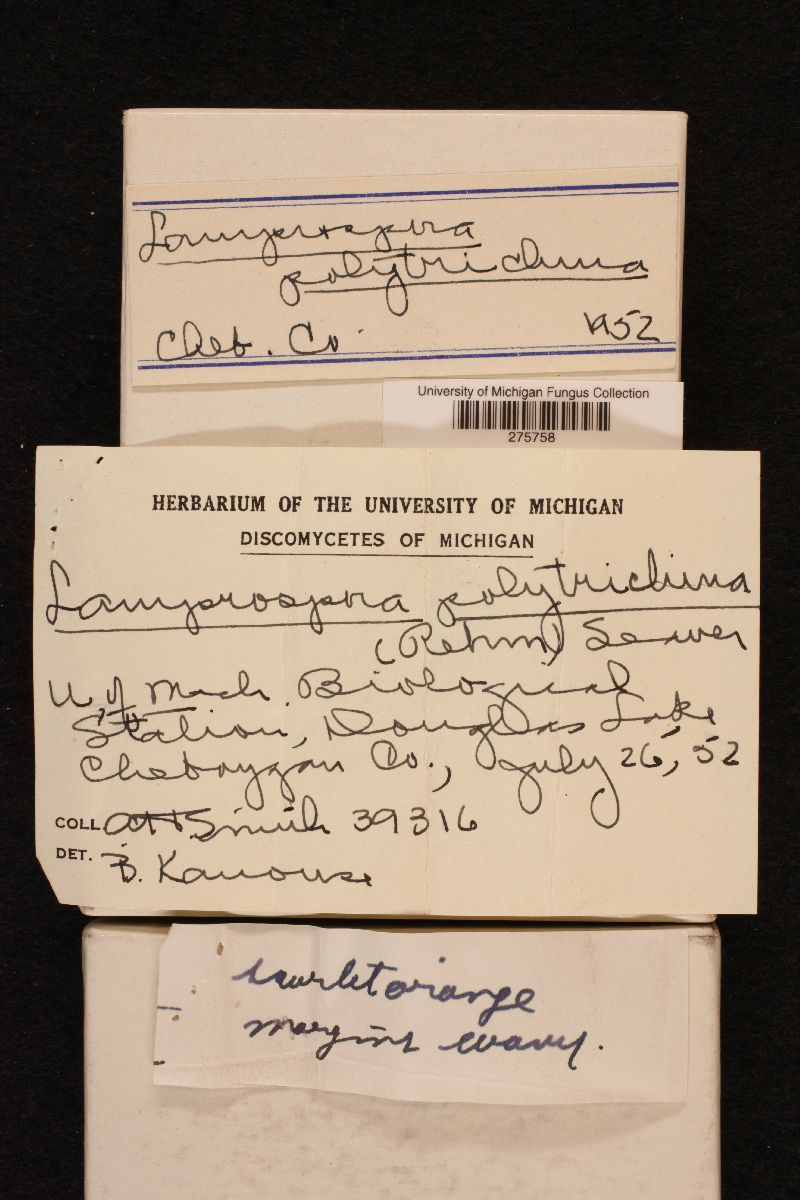 Lamprospora
polytrichina
Cheb. Co.
1952
University of Michigan Fungus Collection
275758
HERBARIUM OF THE UNIVERSITY OF MICHIGAN
DISCOMYCETES OF MICHIGAN
Lamprospora polytrichina
(Rehm) Seaver
U of Mich. Biological
Station, Douglas Lake
Cheboygan Co., July 26, 52
COLL. AH Smith 39316
DET. B. Kanouse
scarlet orange
margins wavy.